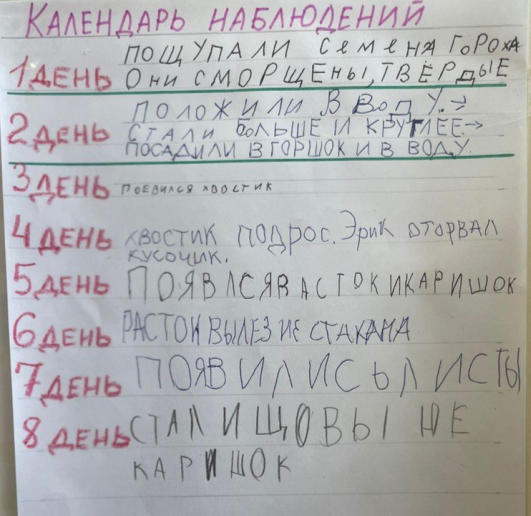 КАЛЕНДАРЬ НАБЛЮДЕНИЙ
ПОЩУПАЛИ СЕМЕНА ГОРОХА
1 ДЕНЬ ОНИ СМОРЩЕНЫ, ТВЁРДЫЕ
ПОЛОЖИЛИ В ВОДУ.→
2 ДЕНЬ СТАЛИ БОЛЬШЕ И КРУГЛЕЕ→
ПОСАДИЛИ В ГОРШОК И В ВОДУ.
3 ДЕНЬ ПОЕВИЛСЯ ХВОСТИК
4 ДЕНЬ ХВОСТИК ПОДРОС. ЭРИК ОТОРВАЛ
КУСОЧИК.
5 ДЕНЬ ПОЯВЛСЯ ВАСТОК ИКАРИШОК
6 ДЕНЬ РАСТОК ВЫЛЕЗ ИЕ СТАКАНА
7 ДЕНЬ ПОЯВИЛИСЬ ЛИСТЫ
8 ДЕНЬ СТАЛ ИЩО ВЫШЕ
КАРИШОК